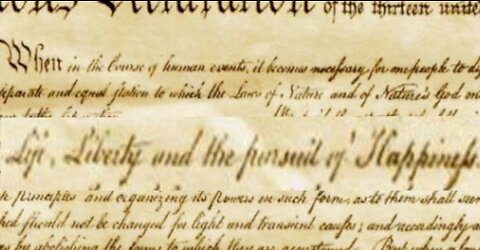 of the thirteen unite
When in the Course of human events, it becomes necessary for one people to di
separate and equal station to which the Laws of Nature and of Nature's God en
Life, Liberty and the pursuit of Happiness.
principles and organizing its powers in such form, as to them shall seem
should not be changed for light and transient causes; and accordingly a
by abolishing the forms to which they are accustomed. But when a long